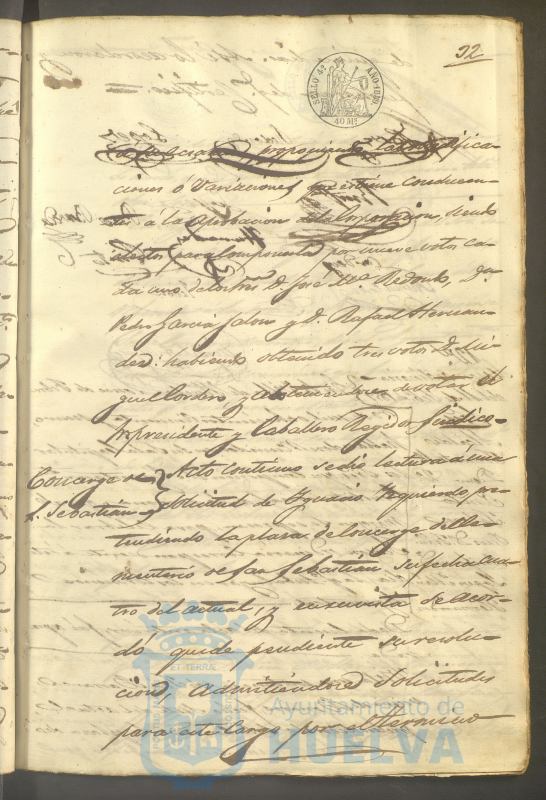 32
SELLO 4º AÑO 1870
40 Ms.
y proponiendo las modifica-
ciones ó variaciones que estime conducen-
tes á la aprobacion de la Corporacion, siendo
electos para componerla por nueve votos ca-
da uno de los Sres. D. José Mª. Redondo, Dn.
Pedro Garcia Jalon y D. Rafael Hernan-
dez: habiendo obtenido tres votos D. Mi-
guel Cordero, y absteniendose de votar el
Sr. presidente y Caballero Regidor Sindico-
Concerge de
S. Sebastián
Acto continuo se dió lectura á una
solicitud de Ygnacio Yzquierdo pre-
tendiendo la plaza de Concerge del Ce-
menterio de San Sebastián, su fecha cua-
tro del actual, y en su vista se acor-
dó quede pendiente su resolu-
cion, admitiendose solicitudes
para este cargo por el termino
Ayuntamiento de
HUELVA